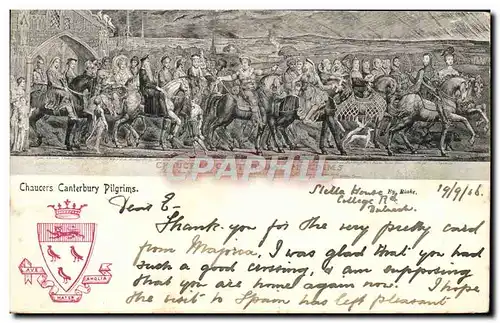 CHAUCERS CANTERBURY PILGRIMS
CPARAMA
Chaucers Canterbury Pilgrims.
Stella House
College Rd
19/9/06.
AVE
MATER
ANGLIÆ
Dear E-
Thank you for the very pretty card
from Majorca, I was glad that you had
such a good crossing, & am supposing
that you are home again now. I hope
the visit to Spain has left pleasant